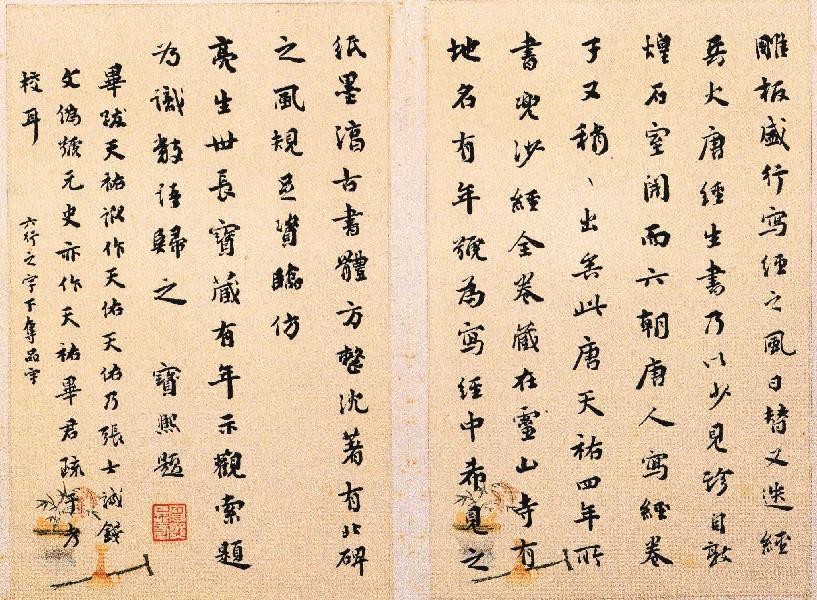 雕板盛行寫經之風日替又迭經
兵火唐經生書乃以少見珍自敦
煌石室開而六朝唐人寫經卷
子又稍〻出矣此唐天祐四年所
書兜沙經全卷藏在靈山寺有
地名有年號為寫經中希見之
紙墨古書體方整沈著有北碑
之風規足資臨仿
亮生世長寶藏有年示觀索題
為識數語歸之 寶熙題
畢跋天祐訛作天佑天佑乃張士誠錢
文偽號元史亦作天祐畢君疏于考
校耳
六行之字下奪品字